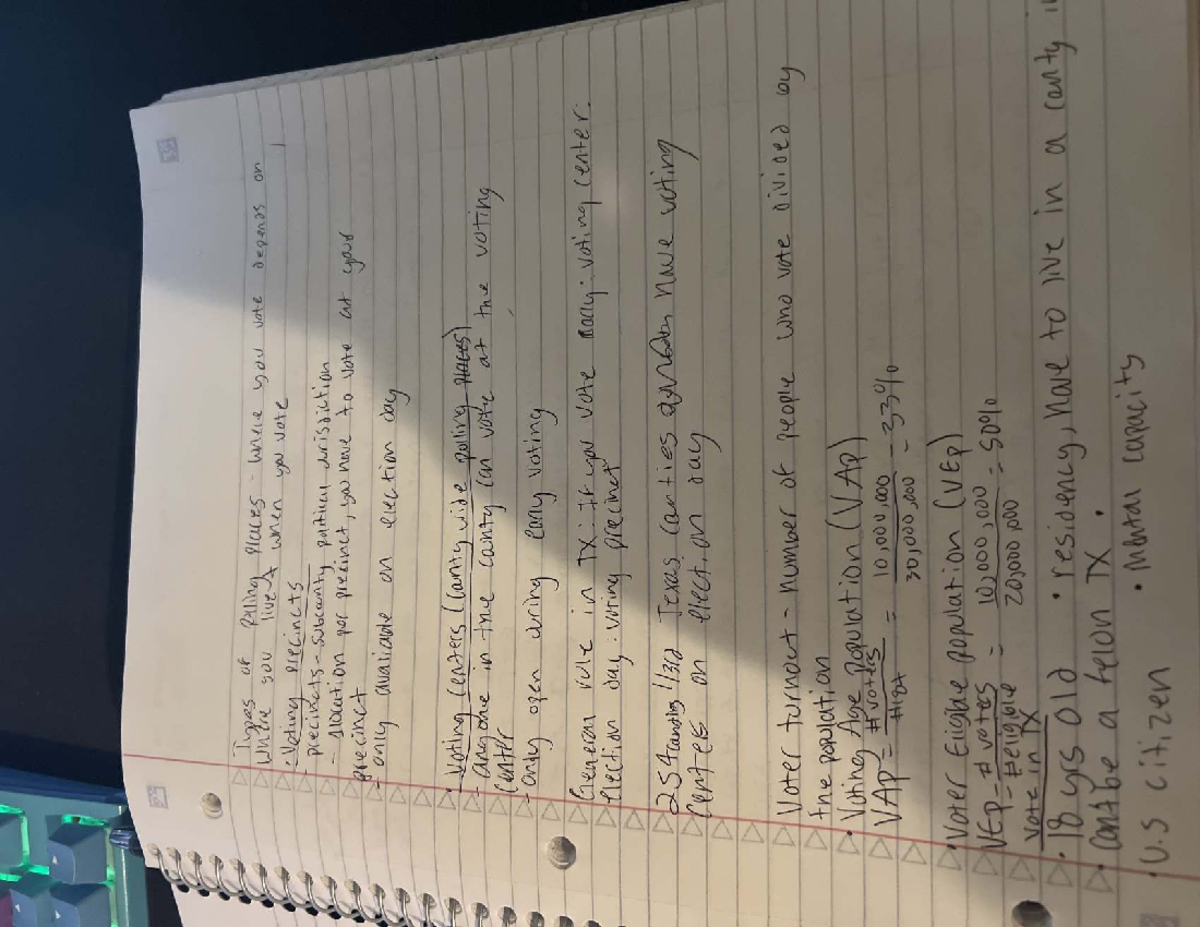 Types of Polling places - where you vote depends on
where you live & when you vote
· Voting precincts
- precincts - subcounty political jurisdiction
- 1 location per precinct, you have to vote at your
precinct
- only available on election day
· Voting Centers (County wide polling places)
- anyone in the county can vote at the voting
center
- only open during early voting
General rule in TX: if you vote early: voting center.
Election day: voting precinct
254 counties 1/3rd Texas counties have voting
centers on election day
Voter turnout - number of people who vote divided by
the population
· Voting Age Population (VAP)
VAP = # voters / #18+ = 10,000,000 / 30,000,000 = 33%
· Voter Eligible population (VEP)
VEP = # voters / #eligible = 10,000,000 / 20,000,000 = 50%
Vote in TX
· 18 yrs old · residency, have to live in a county i
· cant be a felon TX.
· U.S citizen · Mental capacity